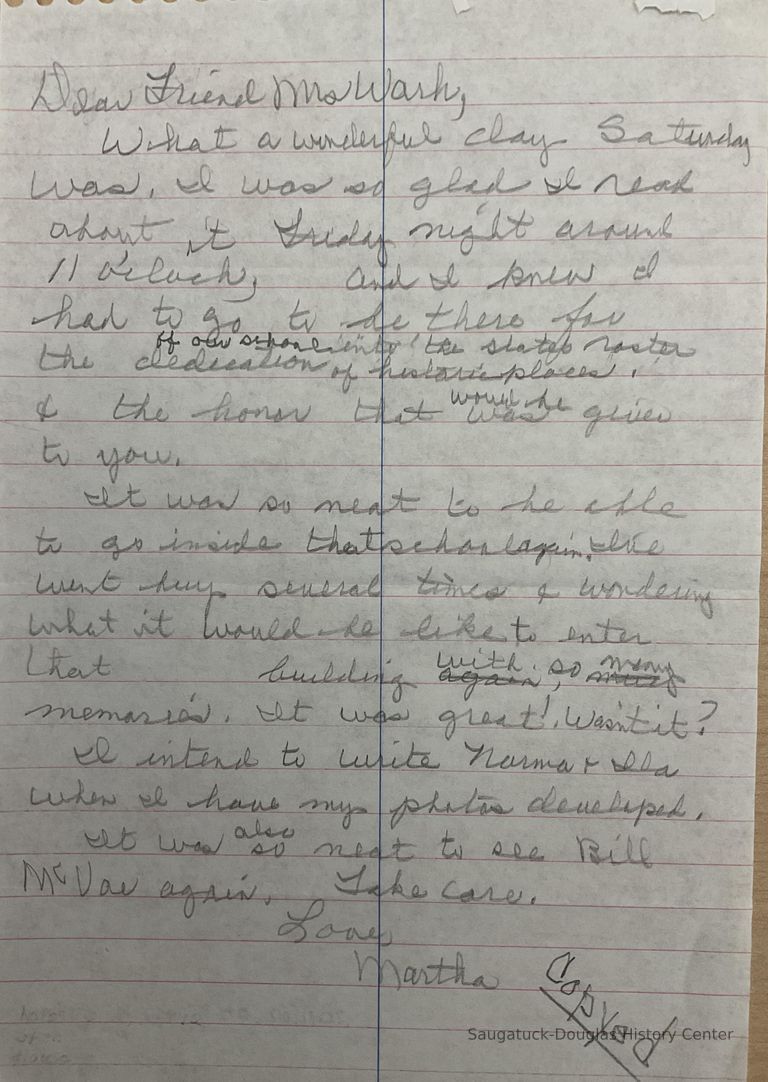 Dear Friend Mrs Wark,
What a wonderful day Saturday
was. I was so glad I read
about it Friday night around
11 o'clock, and I knew I
had to go to be there for
of our school into the states roster
the dedication of historic places.
& the honor that was would be given
to you.
It was so neat to be able
to go inside that school again. I've
went buy several times & wondering
what it would be like to enter
that building again, with so many
memories. It was great! Wasn't it?
I intend to write Norma & Ila
when I have my photos developed.
It was also so neat to see Bill
McVae again. Take care.
Love
Martha
Copyed
Saugatuck-Douglas History Center